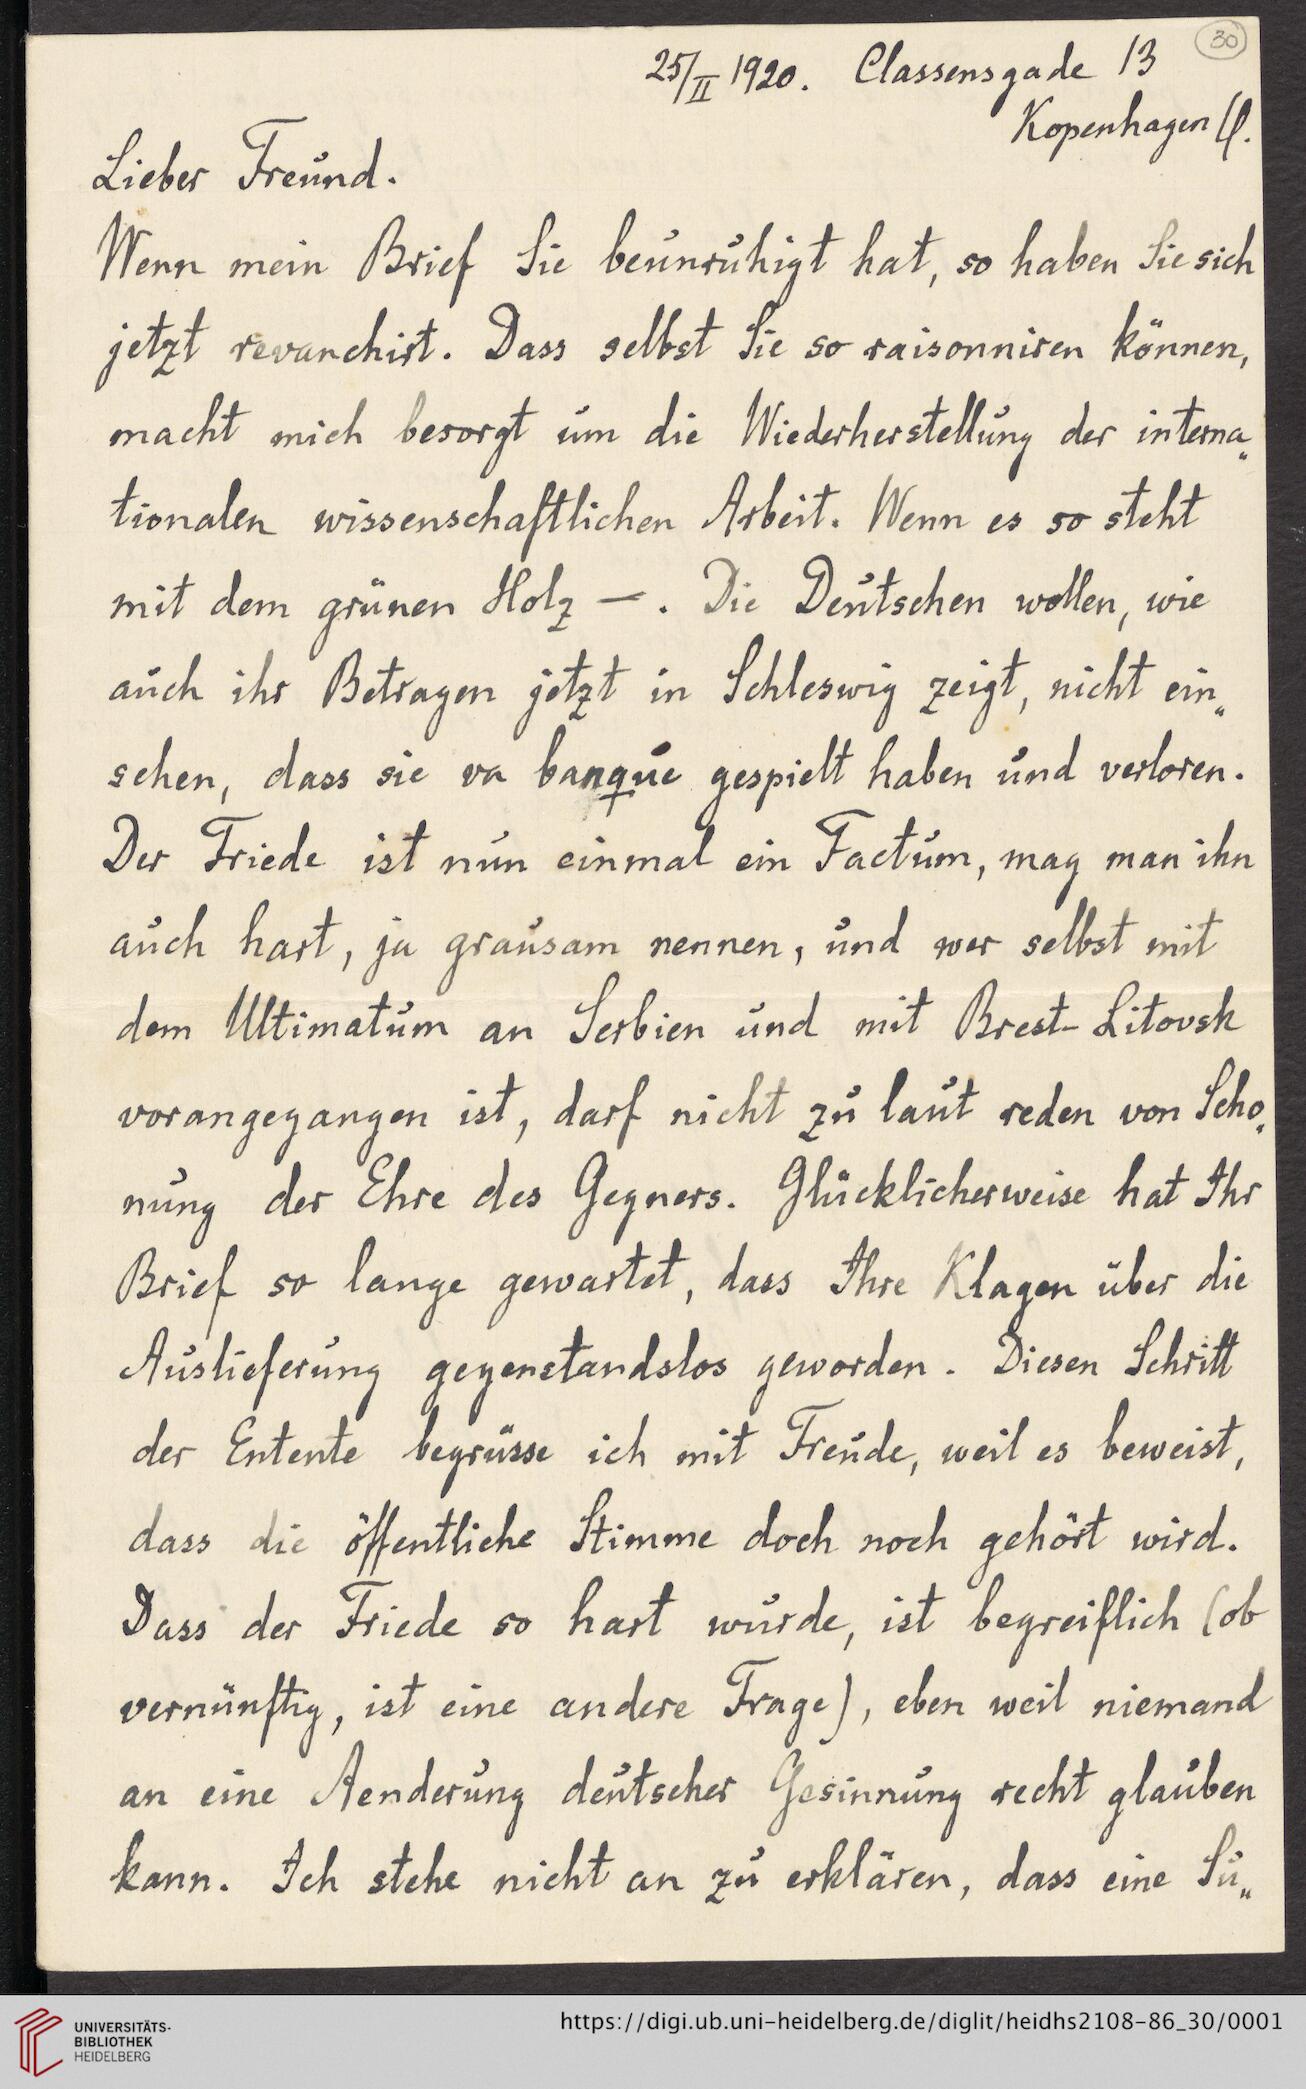 30
25/II 1920. Classensgade 13
Kopenhagen
Lieber Freund.
Wenn mein Brief Sie beunruhigt hat, so haben Sie sich
jetzt revanchirt. Dass selbst Sie so raisonniren können,
macht mich besorgt um die Wiederherstellung der interna„
tionalen wissenschaftlichen Arbeit. Wenn es so steht
mit dem grünen Holz —. Die Deutschen wollen, wie
auch ihr Betragen jetzt in Schleswig zeigt, nicht ein„
sehen, dass sie va banque gespielt haben und verloren.
Der Friede ist nun einmal ein Factum, mag man ihn
auch hart, ja grausam nennen, und wer selbst mit
dem Ultimatum an Serbien und mit Brest-Litovsk
vorangegangen ist, darf nicht zu laut reden von Scho„
nung der Ehre des Gegners. Glücklicherweise hat Ihr
Brief so lange gewartet, dass Ihre Klagen über die
Auslieferung gegenstandslos geworden. Diesen Schritt
der Entente begrüsse ich mit Freude, weil es beweist,
dass die öffentliche Stimme doch noch gehört wird.
Dass der Friede so hart wurde, ist begreiflich (ob
vernünftig, ist eine andere Frage), eben weil niemand
an eine Aenderung deutscher Gesinnung recht glauben
kann. Ich stehe nicht an zu erklären, dass eine Su„
UNIVERSITÄTS-
BIBLIOTHEK
HEIDELBERG
https://digi.ub.uni-heidelberg.de/diglit/heidhs2108-86_30/0001